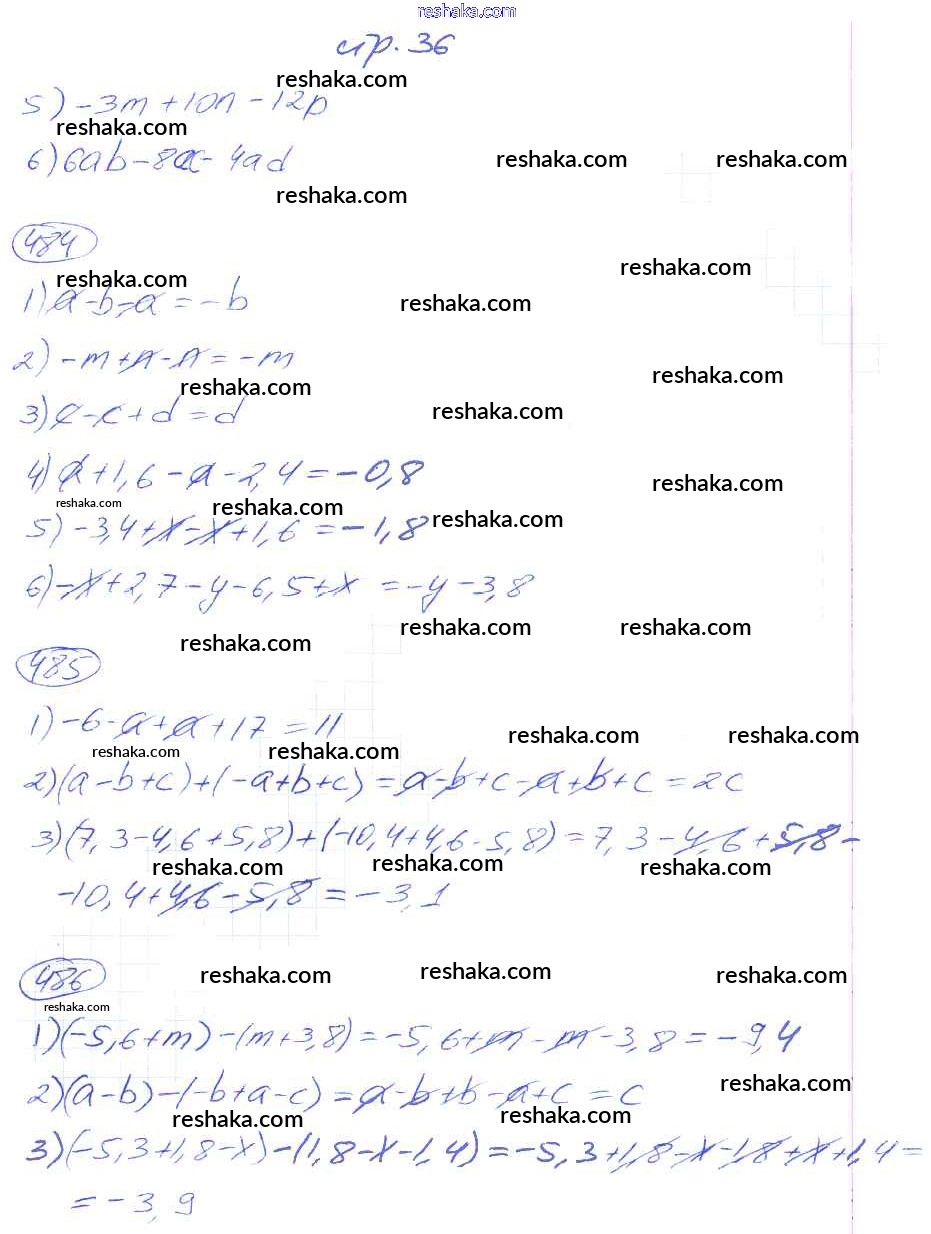 reshaka.com
стр. 36
reshaka.com
5) -3m + 10n - 12p
reshaka.com
reshaka.com reshaka.com
6) 6ab - 8ac - 4ad
reshaka.com
484
reshaka.com
reshaka.com
1) a - b - a = -b
reshaka.com
2) -m + n - n = -m
reshaka.com
reshaka.com
3) c - c + d = d
reshaka.com
4) a + 1,6 - a - 2,4 = -0,8
reshaka.com
reshaka.com
reshaka.com
reshaka.com
5) -3,4 + x - x + 1,6 = -1,8
6) -x + 2,7 - y - 6,5 + x = -y - 3,8
reshaka.com reshaka.com
reshaka.com
485
1) -6 - a + a + 17 = 11
reshaka.com reshaka.com
reshaka.com reshaka.com
2) (a - b + c) + (-a + b + c) = a - b + c - a + b + c = 2c
3) (7,3 - 4,6 + 5,8) + (-10,4 + 4,6 - 5,8) = 7,3 - 4,6 + 5,8 -
reshaka.com reshaka.com reshaka.com
-10,4 + 4,6 - 5,8 = -3,1
486
reshaka.com reshaka.com reshaka.com
reshaka.com
1) (-5,6 + m) - (m + 3,8) = -5,6 + m - m - 3,8 = -9,4
reshaka.com
2) (a - b) - (-b + a - c) = a - b + b - a + c = c
reshaka.com reshaka.com
3) (-5,3 + 1,8 - x) - (1,8 - x - 1,4) = -5,3 + 1,8 - x - 1,8 + x + 1,4 =
= -3,9